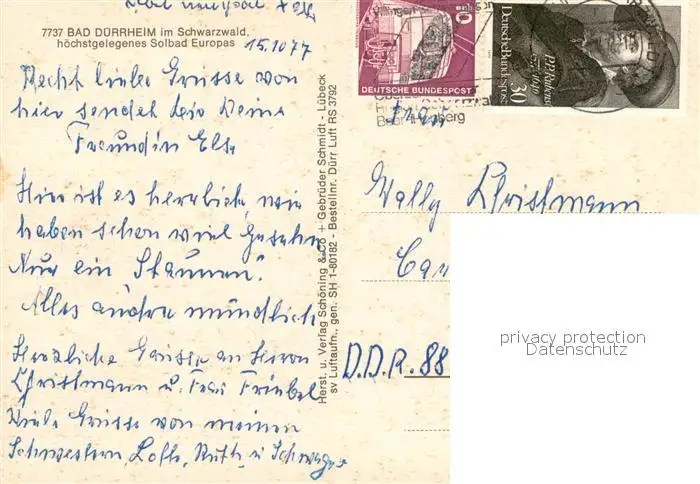 7737 BAD DÜRRHEIM im Schwarzwald,
höchstgelegenes Solbad Europas
15.10.77
Recht liebe Grüsse von
hier sendet dir Deine
Freundin Else
Hier ist es herrlich, wir
haben schon viel Gesehn
Nur ein Staunen.
Alles andre mündlich
Herzliche Grüsse an Herrn
Christmann u. Frau Friebel
Viele Grüsse von meinen
Schwestern, Lotte, Ruth u Schwager
Herst. u. Verlag Schöning & Co + Gebrüder Schmidt - Lübeck
sv Luftaufn., gen. SH 1-80182 - Bestellnr. Dürr Luft RS 3792
DEUTSCHE BUNDESPOST
Deutsche Bundespost
P.P. Rubens
1577 1640
30
Wally Christmann
D.D.R. 88
privacy protection
Datenschutz